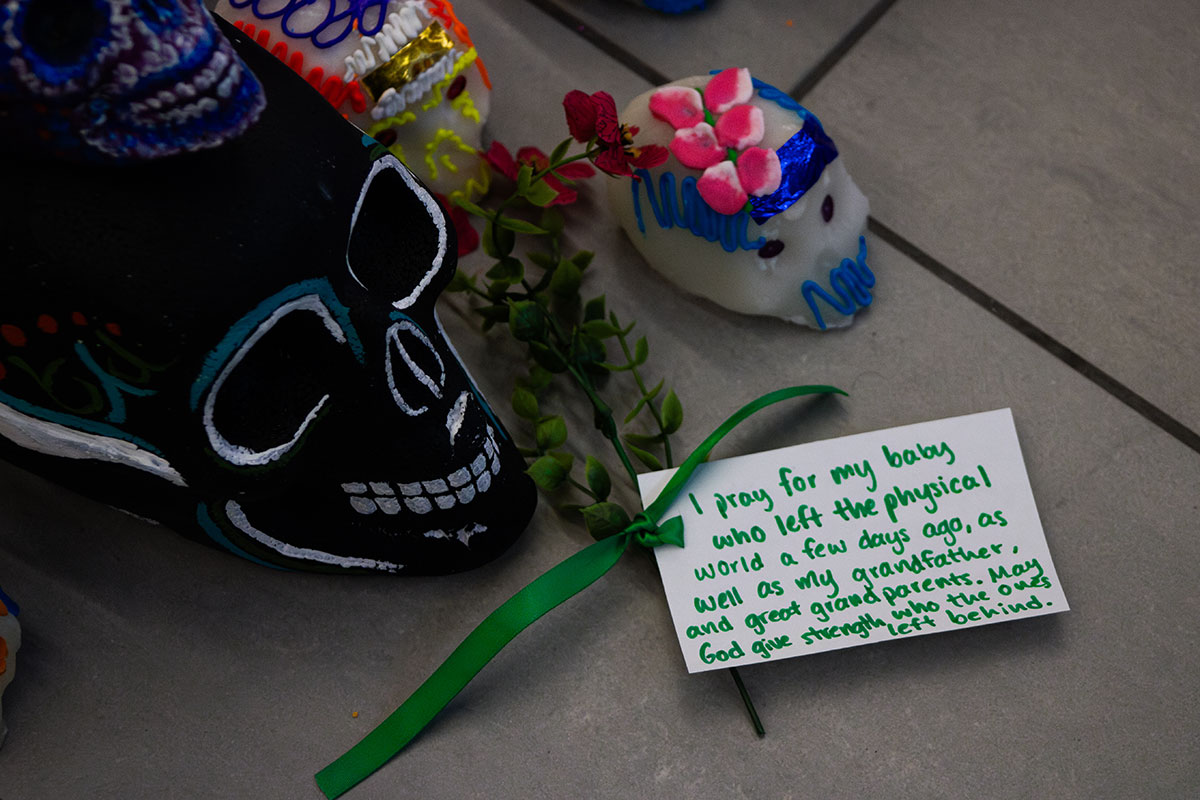 I pray for my baby
who left the physical
world a few days ago, as
well as my grandfather,
and great grandparents. May
God give strength who the ones
left behind.